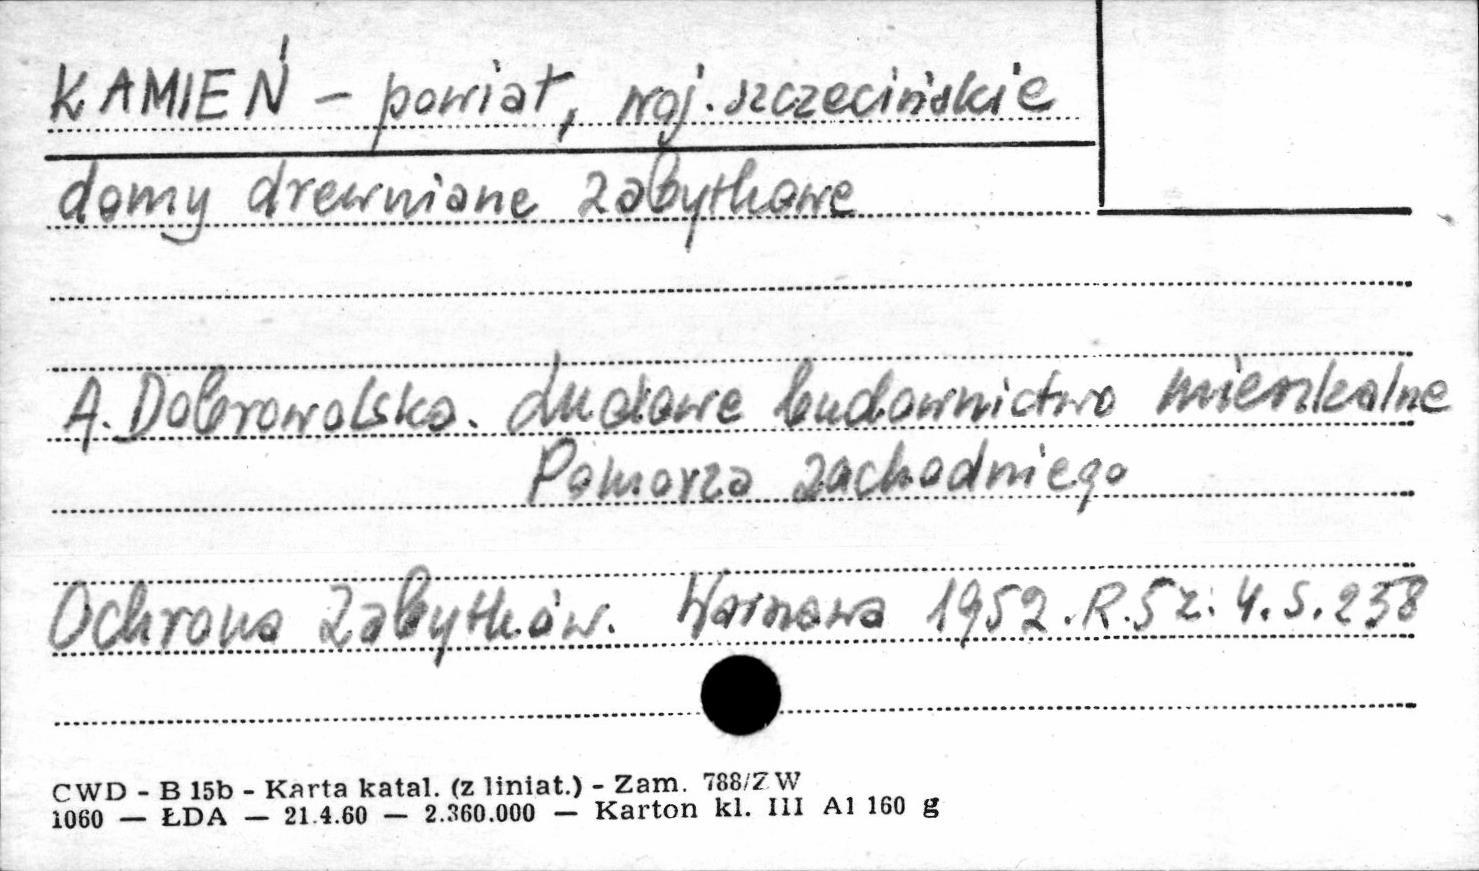 KAMIEŃ - powiat, woj. szczecińskie
domy drewniane zabytkowe
A. Dobrowolska. Ludowe budownictwo mieszkalne
Pomorza zachodniego
Ochrona Zabytków. Warszawa 1952. R. 5 z. 4. s. 238
CWD - B 15b - Karta katal. (z liniat.) - Zam. 788/ZW
1060 — ŁDA — 21.4.60 — 2.360.000 — Karton kl. III A1 160 g